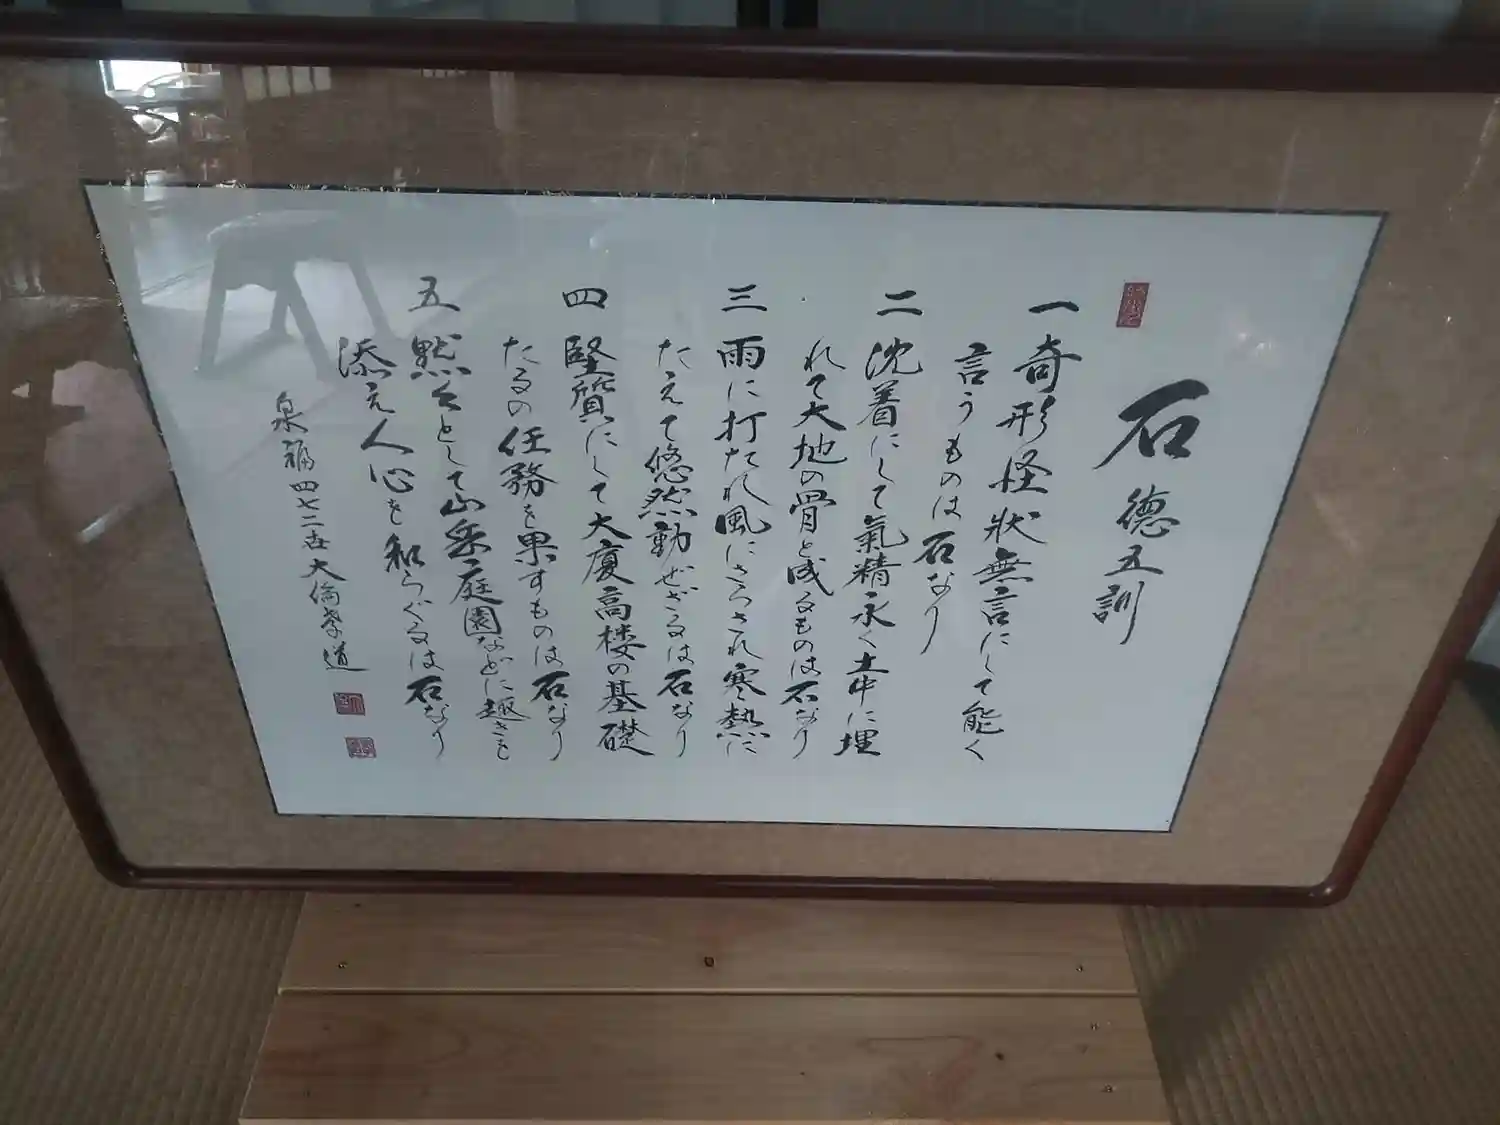 石徳五訓
一 奇形怪状無言にして能く
言うものは石なり
二 沈着にして氣精永く土中に埋
れて大地の骨と成るものは石なり
三 雨に打たれ風にさらされ寒熱に
たえて悠然動ぜざるは石なり
四 堅質にして大廈高楼の基礎
たるの任務を果すものは石なり
五 黙々として山岳庭園などに趣きを
添え人心を和らぐるは石なり
泉福四七二世大倫孝道